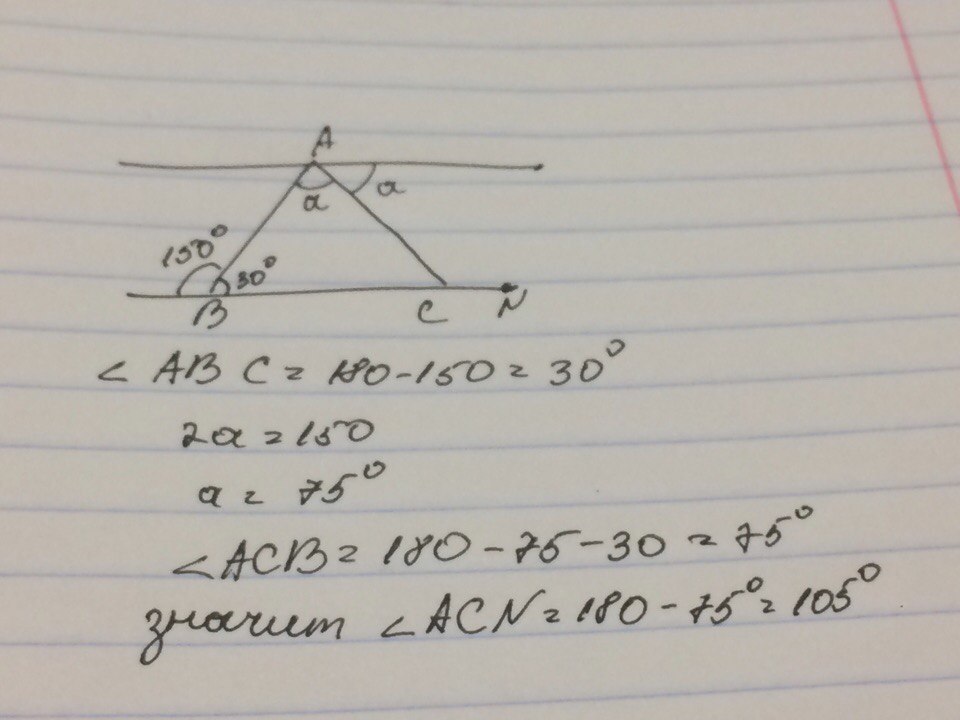 A
α
α
150°
30°
B
C
N
∠ ABC = 180-150 = 30°
2α = 150
α = 75°
∠ACB = 180 - 75 - 30 = 75°
значит ∠ACN = 180 - 75° = 105°